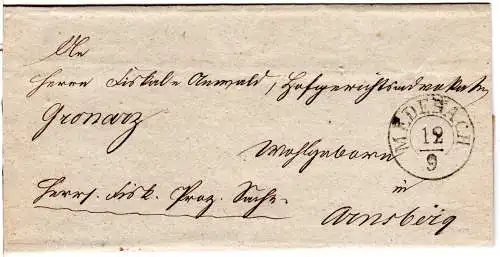 An
Herrn Fiskal-Anwald, Hofgerichtsadvokaten
Gronarz
MEDEBACH
12
9
Wohlgeborn
in
Herrs. Fisk. Proz. Sache.
Arnsberg